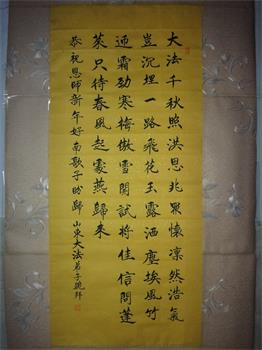 大法千秋照洪恩兆衆懷凜然浩氣
豈沉埋一路飛花玉露洒塵埃風竹
迎霜勁寒梅傲雪開試將佳信問蓬
萊只待春風起處燕歸來
恭祝恩師新年好南歌子盼歸山东大法弟子跪拜